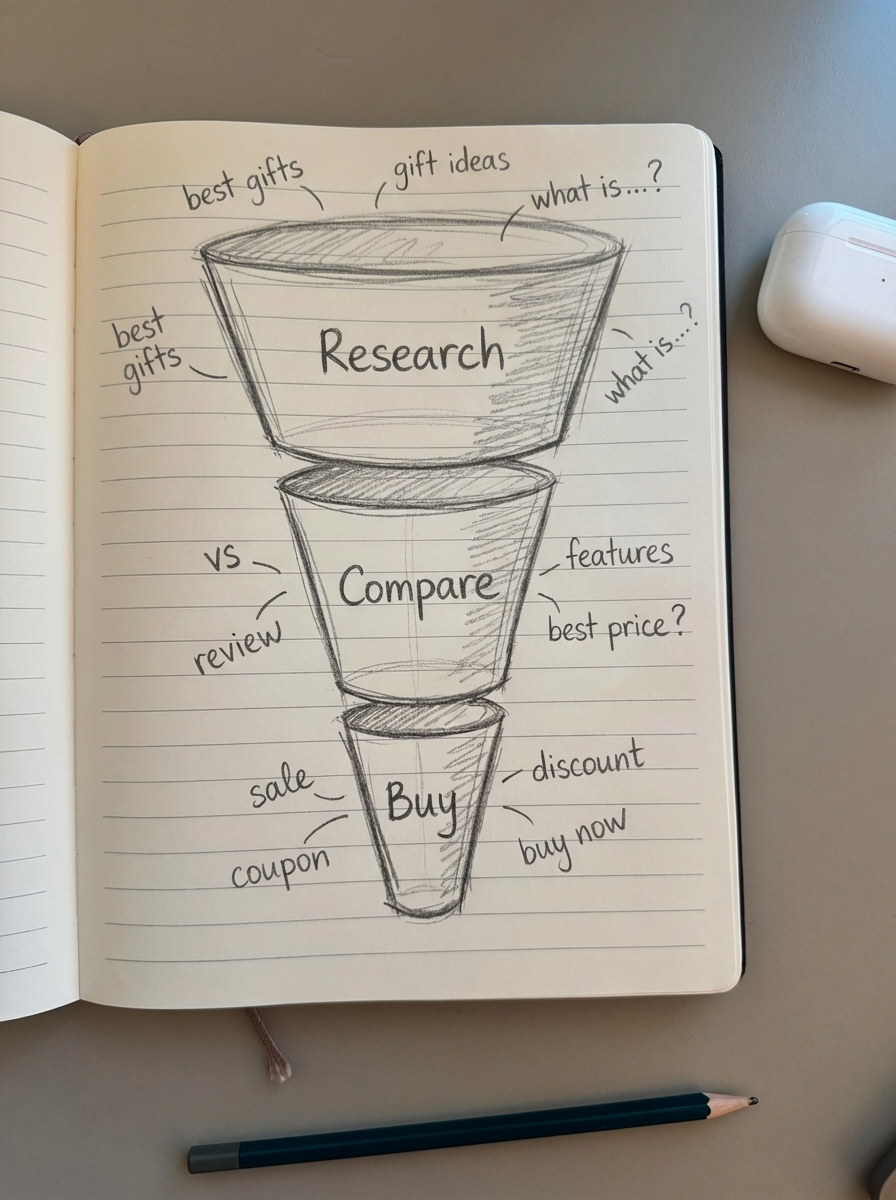 best gifts
gift ideas
what is...?
best
gifts
Research
what is....?
vs
review
Compare
features
best price?
sale
coupon
Buy
discount
buy now